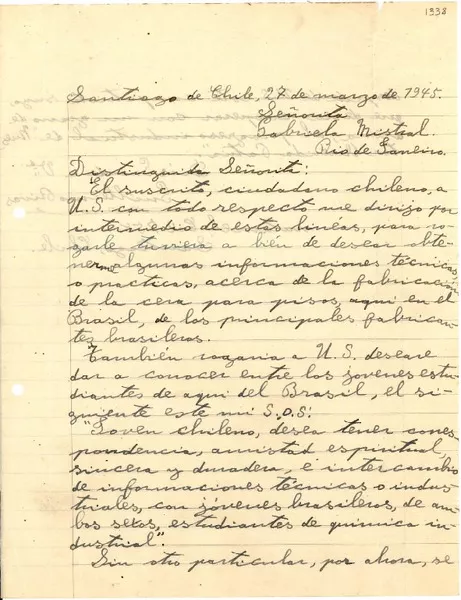 1338
Santiago de Chile, 27 de marzo de 1945.
Señorita
Gabriela Mistral.
Rio de Janeiro.
Distinguida Señorita:
El suscrito, ciudadano chileno, a
U.S. con todo respecto me dirijo por
intermedio de estas lineás, para ro-
garle tuviera a bien de desear obte-
nerme algunas informaciones técnicas
o practicas, acerca de la fabricación
de la cera para pisos, aqui en el
Brasil, de los principales fabrican-
tes brasileros.
También rogaria a U.S. deseare
dar a conocer entre los jóvenes estu-
diantes de aqui del Brasil, el si-
guiente este mi S.O.S:
"Joven chileno, desea tener corres-
pondencia, amistad espiritual,
sincera y duradera, e intercambio
de informaciones técnicas o indus-
triales, con jóvenes brasileros, de am-
bos sexos, estudiantes de quimica in-
dustrial".
Sin otro particular, por ahora, se